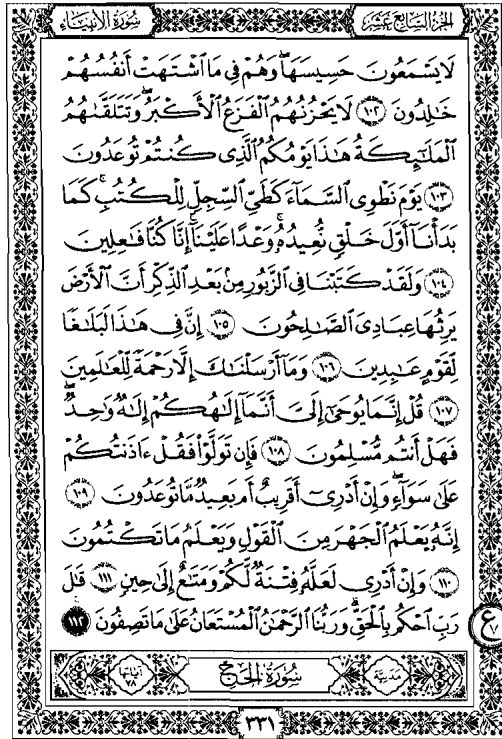 الجزء السابع عشر
سورة الأنبياء
لَا يَسْمَعُونَ حَسِيسَهَا ۖ وَهُمْ فِي مَا ٱشْتَهَتْ أَنفُسُهُمْ
خَٰلِدُونَ ١٠٢ لَا يَحْزُنُهُمُ ٱلْفَزَعُ ٱلْأَكْبَرُ وَتَتَلَقَّىٰهُمُ
ٱلْمَلَٰٓئِكَةُ هَٰذَا يَوْمُكُمُ ٱلَّذِى كُنتُمْ تُوعَدُونَ
١٠٣ يَوْمَ نَطْوِى ٱلسَّمَآءَ كَطَىِّ ٱلسِّجِلِّ لِلْكُتُبِ ۚ كَمَا
بَدَأْنَآ أَوَّلَ خَلْقٍ نُّعِيدُهُۥ ۚ وَعْدًا عَلَيْنَآ ۚ إِنَّا كُنَّا فَٰعِلِينَ
١٠٤ وَلَقَدْ كَتَبْنَا فِى ٱلزَّبُورِ مِنۢ بَعْدِ ٱلذِّكْرِ أَنَّ ٱلْأَرْضَ
يَرِثُهَا عِبَادِىَ ٱلصَّٰلِحُونَ ١٠٥ إِنَّ فِى هَٰذَا لَبَلَٰغًا
لِّقَوْمٍ عَٰبِدِينَ ١٠٦ وَمَآ أَرْسَلْنَٰكَ إِلَّا رَحْمَةً لِّلْعَٰلَمِينَ
١٠٧ قُلْ إِنَّمَا يُوحَىٰٓ إِلَىَّ أَنَّمَآ إِلَٰهُكُمْ إِلَٰهٌ وَٰحِدٌ ۖ
فَهَلْ أَنتُم مُّسْلِمُونَ ١٠٨ فَإِن تَوَلَّوْا۟ فَقُلْ ءَاذَنتُكُمْ
عَلَىٰ سَوَآءٍ ۖ وَإِنْ أَدْرِىٓ أَقَرِيبٌ أَم بَعِيدٌ مَّا تُوعَدُونَ ١٠٩
إِنَّهُۥ يَعْلَمُ ٱلْجَهْرَ مِنَ ٱلْقَوْلِ وَيَعْلَمُ مَا تَكْتُمُونَ
١١٠ وَإِنْ أَدْرِى لَعَلَّهُۥ فِتْنَةٌ لَّكُمْ وَمَتَٰعٌ إِلَىٰ حِينٍ ١١١ قَٰلَ
رَبِّ ٱحْكُم بِٱلْحَقِّ ۗ وَرَبُّنَا ٱلرَّحْمَٰنُ ٱلْمُسْتَعَانُ عَلَىٰ مَا تَصِفُونَ ١١٢
ع ٧
مدنية سورة الحج آياتها ٧٨
٣٣١